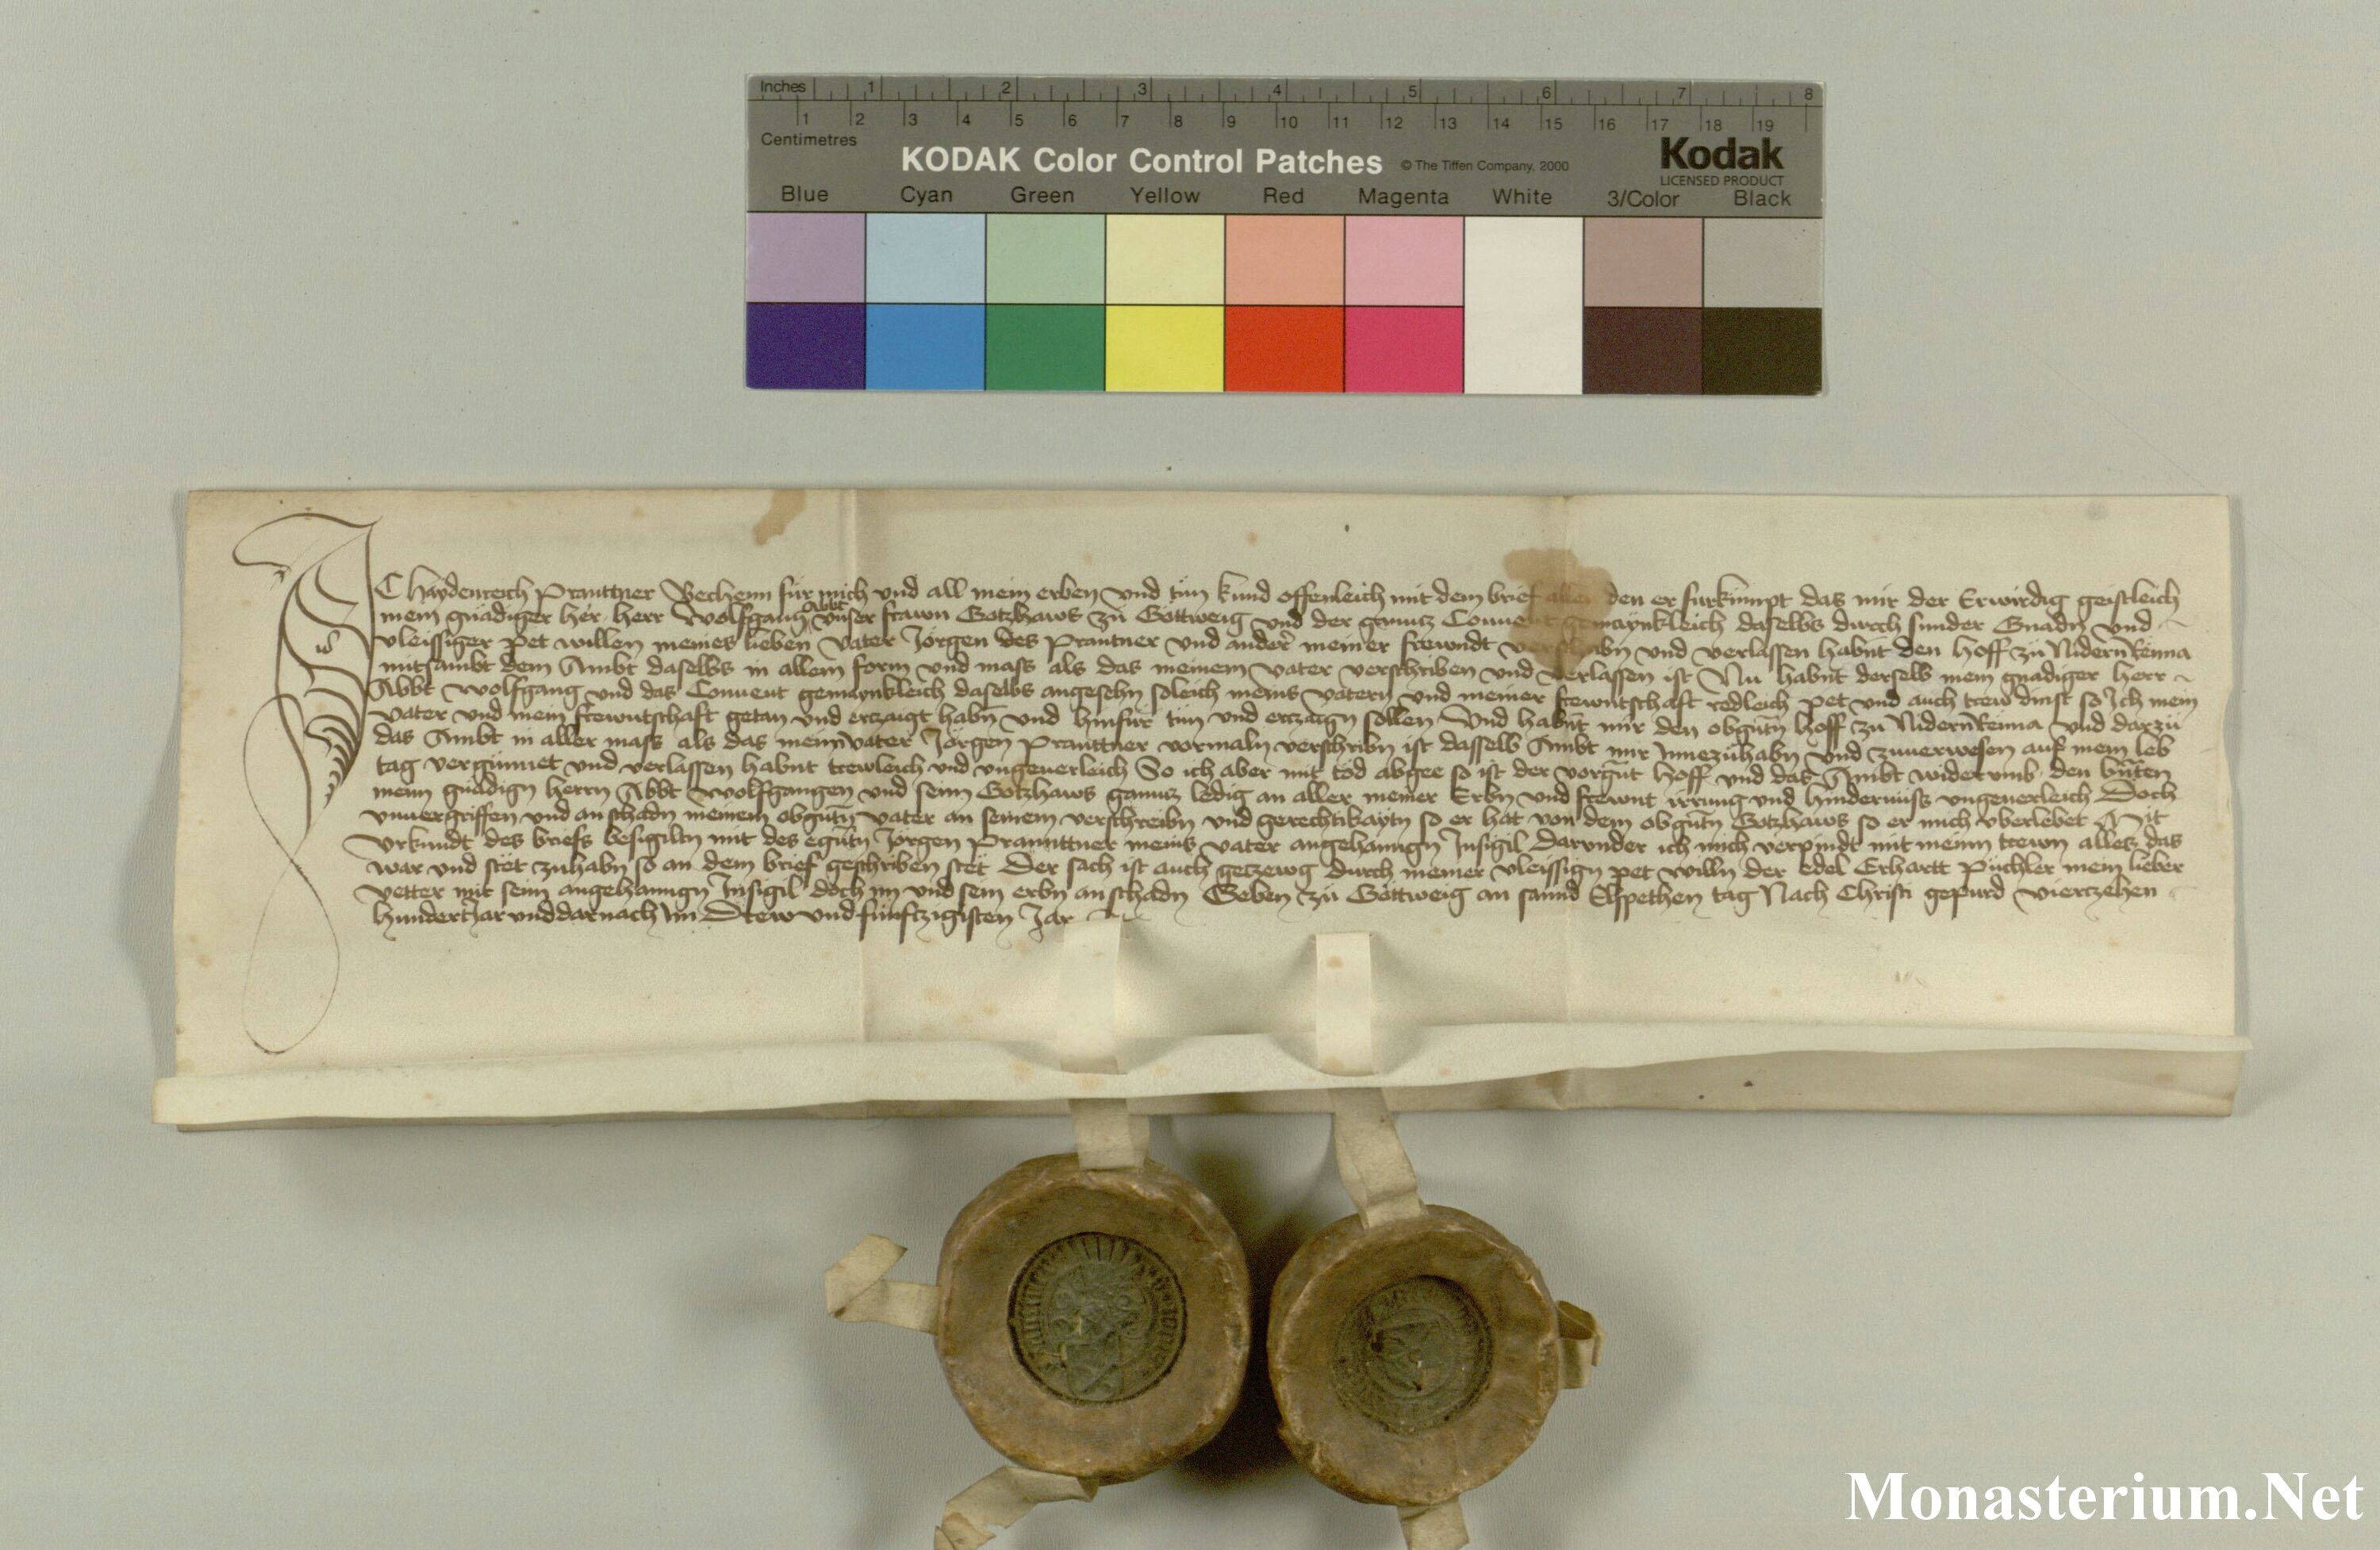 Inches 1 2 3 4 5 6 7 8
1 2 3 4 5 6 7 8 9 10 11 12 13 14 15 16 17 18 19
Centimetres
KODAK Color Control Patches © The Tiffen Company, 2000 Kodak
LICENSED PRODUCT
Blue Cyan Green Yellow Red Magenta White 3/Color Black
ICh Haydenreich Pranttner Bechenn für mich vnd all mein erben vnd tün kund offenleich mit dem brief allen den er fürkümpt das mir der Erwirdig geistleich
mein gnädiger her herr Wolfgang Abbt vnser frawn Gotzhaws zü Göttweig vnd der gannz Conuent gemaynkleich daselbs durch sunder Gnadn vnd
vleissiger pet willen meines lieben vater Jörgen des Prantner vnd ander meiner frewndt verschribn vnd verlassen habnt den Hoff zü Nidern Renna
mitsambt dem Ambt daselbs in allem form vnd mass als das meinem vater verschriben vnd verlassen ist Nu habnt derselb mein gnadiger herr
Abbt Wolfgang vnd das Conuent gemaynkleich daselbs angesehn soleich meins vatern vnd meiner frewntschaft redleich pet vnd auch trew dinst so Ich mein
vater vnd mein frewntschaft getan vnd erzaigt habn vnd hinfür tün vnd erzaign sollen Vnd habnt mir den obgntn hoff zu Nidern Renna vnd darzü
das Ambt in aller mass als das meinm vater Jörgen Pranttner vormaln verschribn ist dasselb Ambt mir Innezühabn vnd zuuerwesen auf mein leb
tag vergünnet vnd verlassen habnt trewleich vnd vngeuerleich So ich aber mit tod abgee so ist der vorgnt Hoff vnd das Ambt widerumb den
meim gnädign herrn Abbt Wolfgangen vnd seim Gotzhaws gannz ledig an aller meiner Erbn vnd frewnt irrung vnd hindernüss vngeuerleich Doch
vnuergriffen vnd an schadn meinem obgntn vater an seinem verschreibn vnd gerechtikaytn so er hat von dem obgntn Gotzhaws so er mich vberlebet Mit
vrkundt des briefs besigiltn mit des egntn Jörgen Prannttner meins vater anngehanngn Insigil Darunder ich mich verpindt mit meinn trewn alles das
war vnd stet zuhabn so an dem brief geschriben stet Der sach ist auch getzewg durch meiner vleissign pet willn der edel Erhartt Püchler mein lieber
vetter mit seim angehanngn Insigil doch im vnd sein erbn an schadn Geben zü Göttweig an sannd Elspethen tag Nach Christi gepurd vierczehen
hundert Jar vnd darnach Im Drew vnd fünftzigisten Jar
Monasterium.Net